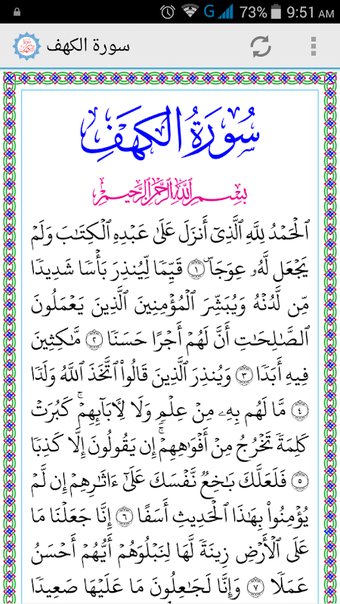 73% 9:51 AM
سورة الكهف
سُورَةُ الكَهَفِ
بِسْمِ اللَّهِ الرَّحْمَٰنِ الرَّحِيمِ
ٱلْحَمْدُ لِلَّهِ ٱلَّذِىٓ أَنزَلَ عَلَىٰ عَبْدِهِ ٱلْكِتَٰبَ وَلَمْ
يَجْعَل لَّهُۥ عِوَجَاۜ ۝١ قَيِّمًا لِّيُنذِرَ بَأْسًا شَدِيدًا
مِّن لَّدُنْهُ وَيُبَشِّرَ ٱلْمُؤْمِنِينَ ٱلَّذِينَ يَعْمَلُونَ
ٱلصَّٰلِحَٰتِ أَنَّ لَهُمْ أَجْرًا حَسَنًا ۝٢ مَّٰكِثِينَ
فِيهِ أَبَدًا ۝٣ وَيُنذِرَ ٱلَّذِينَ قَالُوا۟ ٱتَّخَذَ ٱللَّهُ وَلَدًا
۝٤ مَّا لَهُم بِهِۦ مِنْ عِلْمٍ وَلَا لِـَٔابَآئِهِمْ ۚ كَبُرَتْ
كَلِمَةً تَخْرُجُ مِنْ أَفْوَٰهِهِمْ ۚ إِن يَقُولُونَ إِلَّا كَذِبًا
۝٥ فَلَعَلَّكَ بَٰخِعٌ نَّفْسَكَ عَلَىٰٓ ءَاثَٰرِهِمْ إِن لَّمْ
يُؤْمِنُوا۟ بِهَٰذَا ٱلْحَدِيثِ أَسَفًا ۝٦ إِنَّا جَعَلْنَا مَا
عَلَى ٱلْأَرْضِ زِينَةً لَّهَا لِنَبْلُوَهُمْ أَيُّهُمْ أَحْسَنُ
عَمَلًا ۝٧ وَإِنَّا لَجَٰعِلُونَ مَا عَلَيْهَا صَعِيدًا